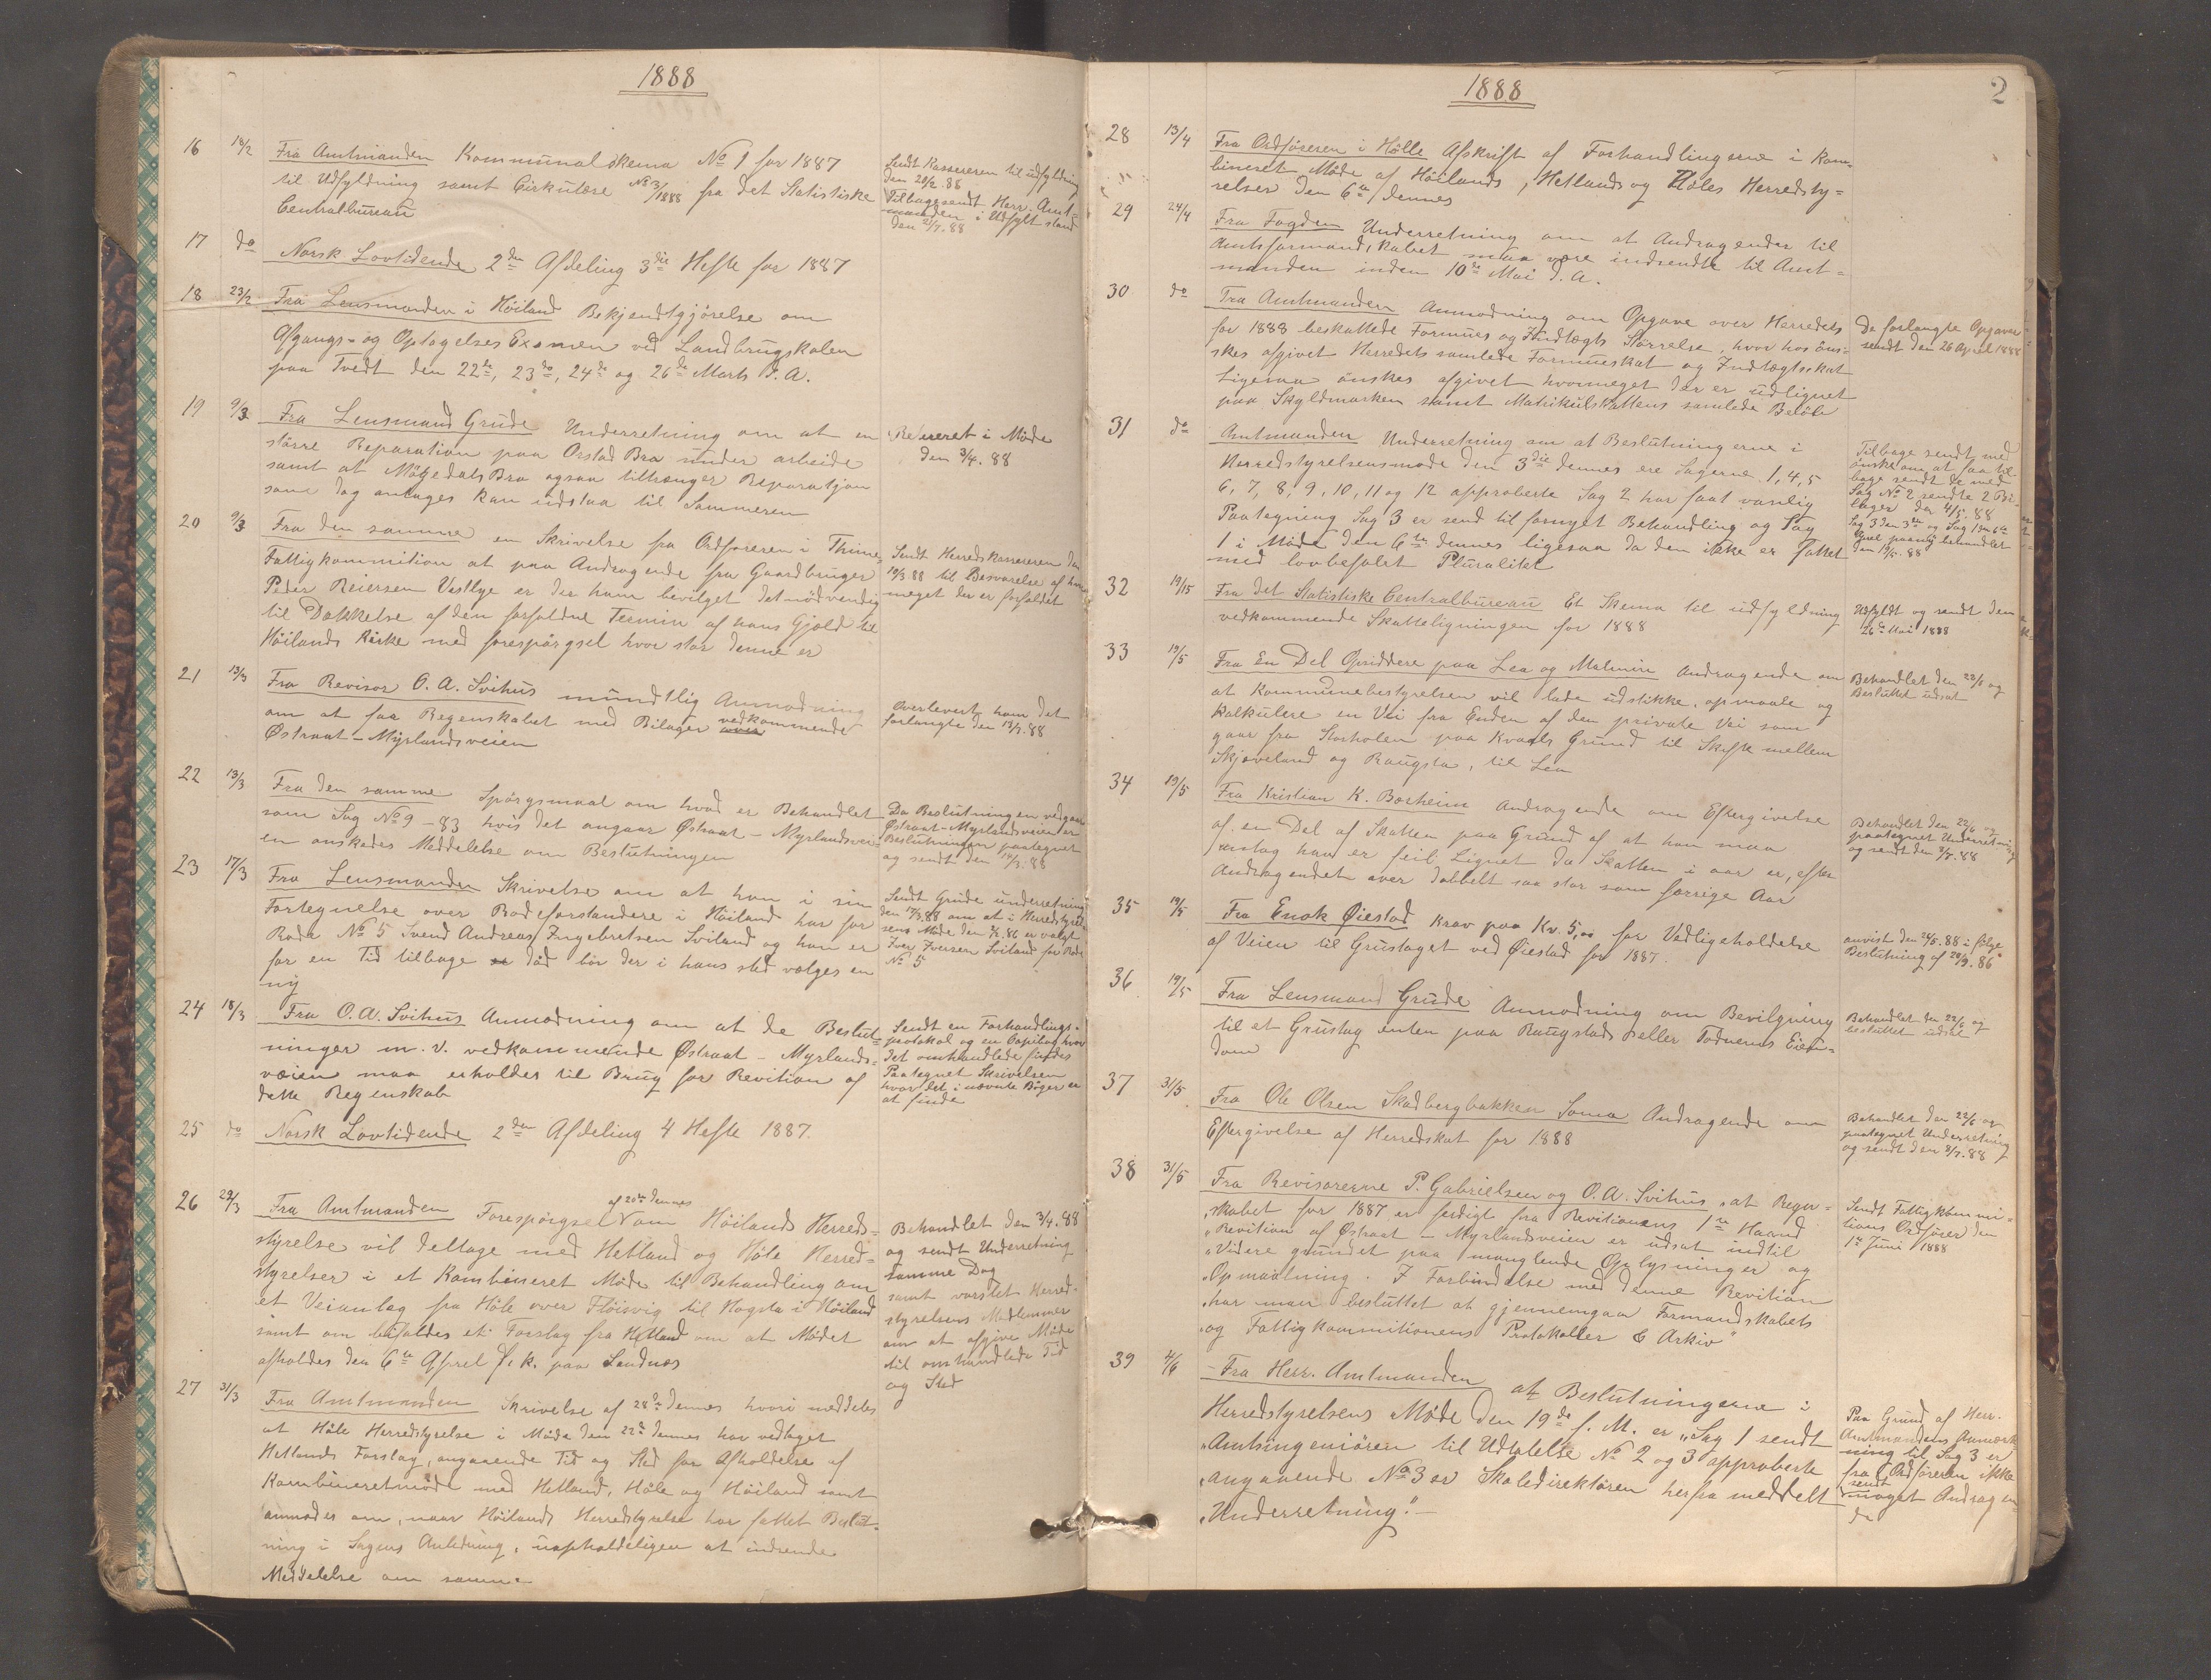 1888
16 18/2 Fra Amtmanden Kommunalskema No 1 for 1887
til Udfyldning samt Cirkulære No 3/1888 fra det Statistiske
Centralbureau
Sendt Kassereren til udfyldning
den 20/2 88
Tilbagesendt Herr. Amt-
manden i Udfylt stand
den 2/7. 88
17 do Norsk Lovtidende 2den Afdeling 3die Hefte for 1887
18 23/2 Fra Lensmanden i Höiland Bekjendtgjörelse om
Afgangs- og Optagelses Examen ved Landbrugskolen
paa Tvedt den 22de, 23de, 24de og 26de Marts d. A.
19 9/3 Fra Lensmand Grude Underretning om at en
större Reparation paa Orstad Bro under arbeide
samt at Mögedals Bro ogsaa tiltrænger Reparatjon
som dog antages kan udstaa til Sommeren
Refereret i Möde
den 3/4. 88
20 9/3 Fra den samme en Skrivelse fra Ordföreren i Thime
Fattigkommition at paa Andragende fra Gaardbruger
Peder Reiersen Vestlye er der ham bevilget det nödvendig
til Dækkelse af den forfaldne Termin af hans Gjæld til
Höilands Kirke med forespörgsel hvor stor denne er
Sendt Herredskassereren den
19/3 88 til Besvarelse af hvor
meget der er forfaldet
21 13/3 Fra Revisor O. A. Svihus mündtlig Anmodning
om at faa Regenskabet med Bilager vedkommende
Østraat - Myrlandsveien
Overlevert ham det
forlangte den 13/3. 88
22 13/3 Fra den samme Spörgsmaal om hvad er Behandlet
som Sag No 9 - 83 hvis det angaar Østraat - Myrlandsvei-
en önskedes Meddelelse om Beslutningen
Da Beslutningen vedgaar
Østraat-Myrlandsveien er
Beslutningen paategnet
og sendt den 14/3. 88
23 17/3 Fra Lensmanden Skrivelse om at han i sin
Fortegnelse over Rodeforstandere i Höiland har for
Rode No 5 Svend Andreas Ingebretsen Sviland og han er
for en Tid tilbage död bör der i hans sted vælges en
ny
Sendt Grude underretning
den 17/3 88 om at i Herredstyrel-
sens Möde den 86 er valgt
Iver Iversen Sviland for Rode
No 5
24 18/3 Fra O. A. Svihus Anmodning om at de Beslut-
ninger m. v. vedkommende Østraat - Myrlands-
væien maa erholdes til Brug for Revition af
dette Regenskab
Sendt en Forhandlings-
protokol og en Copibog hvor
det omhandlede findes
Paategnet Skrivelsen
hvor det i nævnte Böger er
at finde
25 do Norsk Lovtidende 2den Afdeling 4 Hefte 1887.
26 22/3 Fra Amtmanden Forespörgsel af 20de dennes om Höilands Herreds-
styrelse vil deltage med Hetland og Höle Herred-
styrelser i et Kombineret Möde til Behandling om
et Veianlæg fra Höle over Flöisvig til Hogsta i Höiland
samt om bifaldes et Forslag fra Hetland om at Mödet
afholdes den 6te April f. k. paa Sandnæs
Behandlet den 3/4. 88
og sendt Underretning
samme Dag
samt varslet Herred-
styrelsens Medlemmer
om at afgive Möde
til omhandlede Tid
og Sted
27 31/3 Fra Amtmanden Skrivelse af 28de dennes hvori meddeles
at Höle Herredstyrelse i Möde den 22de dennes har vedtaget
Hetlands Forslag, angaaende Tid og Sted for Afholdelse af
Kombineretmöde med Hetland, Höle og Höiland samt
anmodes om, naar Höilands Herredstyrelse har fattet Beslut-
ning i Sagens Anledning, uopholdeligen at indsende
Meddelelse om samme
1888
2
28 13/4 Fra Ordföreren i Hölle Afskrift af Forhandlingerne i Kom-
bineret Möde af Höilands, Hetlands og Höles Herredsty-
relser den 6te dennes
29 24/4 Fra Fogden Underretning om at Andragender til
Amtsformandskabet maa være indsendte til Amt-
manden inden 10de Mai d. A.
30 do Fra Amtmanden Anmodning om Opgave over Herredets
for 1888 beskattede Formues og Indtægts Störrelse, hvor hos öns-
skes afgivet Herredets samlede Formueskat og Indtægtsskat
Ligesaa önskes afgivet hvormeget der er udlignet
paa Skyldmarken samt Matrikulskattens samlede Belöb
De forlangte Opgaver
sendt den 26 April 1888
31 do Amtmanden Underretning om at Beslutningerne i
Herredstyrelsensmöde den 3die dennes ere Sagerne 1, 4, 5
6, 7, 8, 9, 10, 11 og 12 approberte Sag 2 har faat vanlig
Paategning Sag 3 er send til fornyet Behandling og Sag
1 i Möde den 6te dennes ligesaa da den ikke er fattet
med lovbefalet Pluralitet
Tilbage sendt med
önske om at faa til-
bage sendt de med
Sag No 2 sendte 2 Bi-
lager den 4/5. 88
Sag 3 den 3die og Sag 1 den 6te
April paany behandlet
den 19/5. 88
32 19/15 Fra det Statistiske Centralbureau Et Skema til udfyldning
vedkommende Skatteligningen for 1888
Udfyldt og sendt den
26de Mai 1888
33 19/5 Fra En Del Opsiddere paa Lea og Malmin Andragende om
at Kommunebestyrelsen vil lade udstikke, opmaale og
Kalkulere en Vei fra Enden af den private Vei som
gaar fra Storholen paa Kvaals Grund til Skifte mellem
Skjæveland og Raugsta, til Lea
Behandlet den 22/6 og
Besluttet udsat
34 19/5 Fra Kristian K. Borheim Andragende om Eftergivelse
af en Del af Skatten paa Grund af at han maa
antag han er feil Lignet da Skatten i aar er, efter
Andragendet over dobbelt saa stor som forrige Aar
Behandlet den 22/6 og
paategnet Underretning
og sendt den 3/7. 88
35 19/5 Fra Enok Øiestad Krav paa Kr. 5,00 for Vedligeholdelse
af Veien til Grustaget ved Øiestad for 1887.
anvist den 24/5. 88 i fölge
Beslutning af 20/9. 86
36 19/5 Fra Lensmand Grude Anmodning om Bevilgning
til et Grustag enten paa Raugstads eller Todnems Eien-
dom
Behandlet den 22/6 og
besluttet udsat
37 31/5 Fra Ole Olsen Skadbergbakken Soma Andragende om
Eftergivelse af Herredskat for 1888
Behandlet den 22/6 og
paategnet Underretning
og sendt den 3/7. 88
38 31/5 Fra Revisorerne P. Gabrielsen og O. A. Svihus, „at Regn-
„skabet for 1887 er færdigt fra Revitionens 1te Haand
„Revition af Østraat - Myrlandsveien er udsat indtil
„Videre grundet paa manglende Oplysninger og
„Opmaalning. I Forbindelse med denne Revition
„har man besluttet at gjennemgaa Formandskabets
„og Fattigkommitionens Protokoller & Arkiv"
Sendt Fattigkommi-
tions Ordförer den
1te Juni 1888
39 4/6 Fra Herr. Amtmanden at Beslutningerne i
Herredstyrelsens Möde den 19de f. M. er „Sag 1 sendt
„Amtsingeniören til Udtalelse No 2 og 3 approberte
„angaaende No 3 er Skoledirektören herfra meddelt
„Underretning." -
Paa Grund af Herr.
Amtmandens Anmærk-
ning til Sag 3 er
fra Ordföreren ikke
sendt noget Andragen-
de